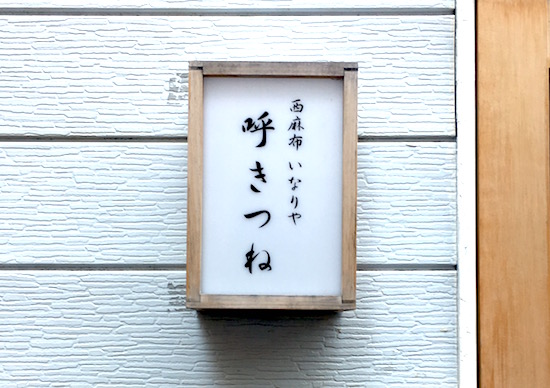 西麻布 いなりや
呼きつね